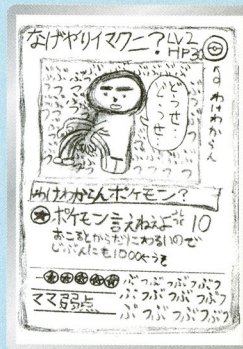 なげやりイマクニ? LV.2
HP30
ぶつぶつぶつ
どうせ‥
どうせっ
なぁ わけわからん
わけわからんポケモン?
ポケモン言えねぇよ 10
おこるとからだにわるいので
じぶんにも1000くらう
ママ弱点
ぶつぶつぶつぶつ
ぶつぶつぶつぶつ
ぶつぶつぶつぶつ